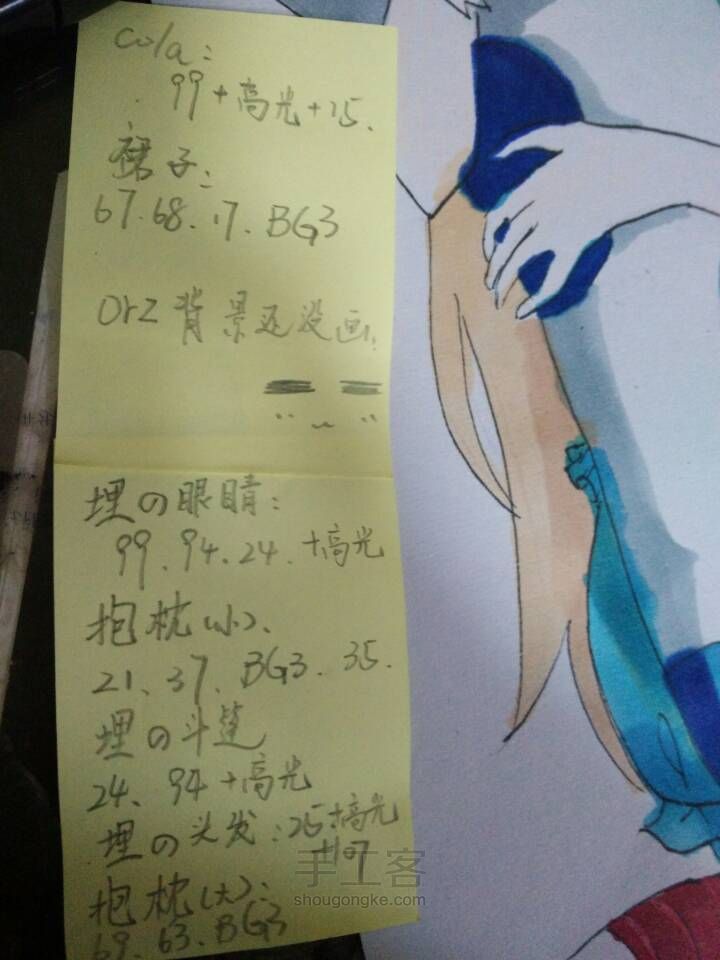 cola:
99+高光+15.
裙子:
67.68.17.BG3
orz 背景还没画.
埋の眼睛:
99.94.24.+高光
抱枕(小).
21、37、BG3、35.
埋の斗篷
24、94+高光
埋の头发:25+高光
+107
抱枕(大):
69.63.BG3
手工客
shougongke.com